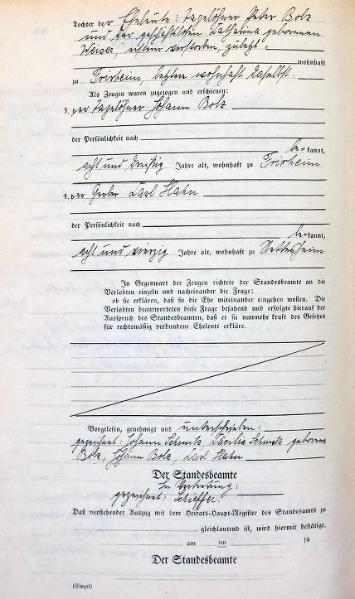 Tochter der Eheleute: Tagelöhner Peter Bolz
und der geschäftslosen Katharina geborenen
Weiser, verstorben, zuletzt
wohnhaft
zu Frixheim, letztere wohnhaft daselbst.
Als Zeugen waren zugezogen und erschienen:
3. der Tagelöhner Johann Bolz
der Persönlichkeit nach
be-kannt,
acht und dreißig Jahre alt, wohnhaft zu Frixheim
4. der Gerber Carl Hahn
der Persönlichkeit nach
be-kannt,
acht und vierzig Jahre alt, wohnhaft zu Nettesheim
In Gegenwart der Zeugen richtete der Standesbeamte an die
Verlobten einzeln und nacheinander die Frage:
ob sie erklären, daß sie die Ehe miteinander eingehen wollen. Die
Verlobten beantworteten diese Frage bejahend und erfolgte hierauf der
Ausspruch des Standesbeamten, daß er sie nunmehr kraft des Gesetzes
für rechtmäßig verbundene Eheleute erkläre.
Vorgelesen, genehmigt und unterschrieben:
gezeichnet: Johann Schmitz, Cäcilia Schmitz geborene
Bolz, Johann Bolz, Carl Hahn
Der Standesbeamte
In Vertretung:
gezeichnet: Schieffer.
Daß vorstehender Auszug mit dem Heirats-Haupt-Register des Standesamts zu
gleichlautend ist, wird hiermit bestätigt.
am ten 19
Der Standesbeamte
(Siegel)